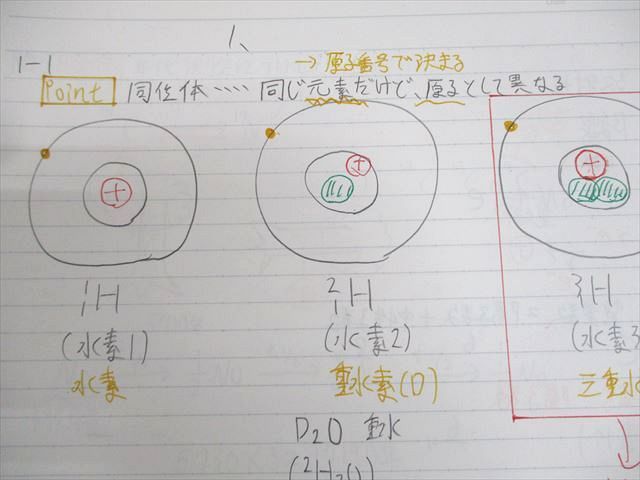 1-1
→ 原子番号で決まる
Point 同位体‥‥ 同じ元素だけど、原子として異なる
+ + +
¹₁H ²₁H ³₁H
(水素1) (水素2) (水素3
水素 重水素(D) 三重水
D₂O 重水
(²H₂O)